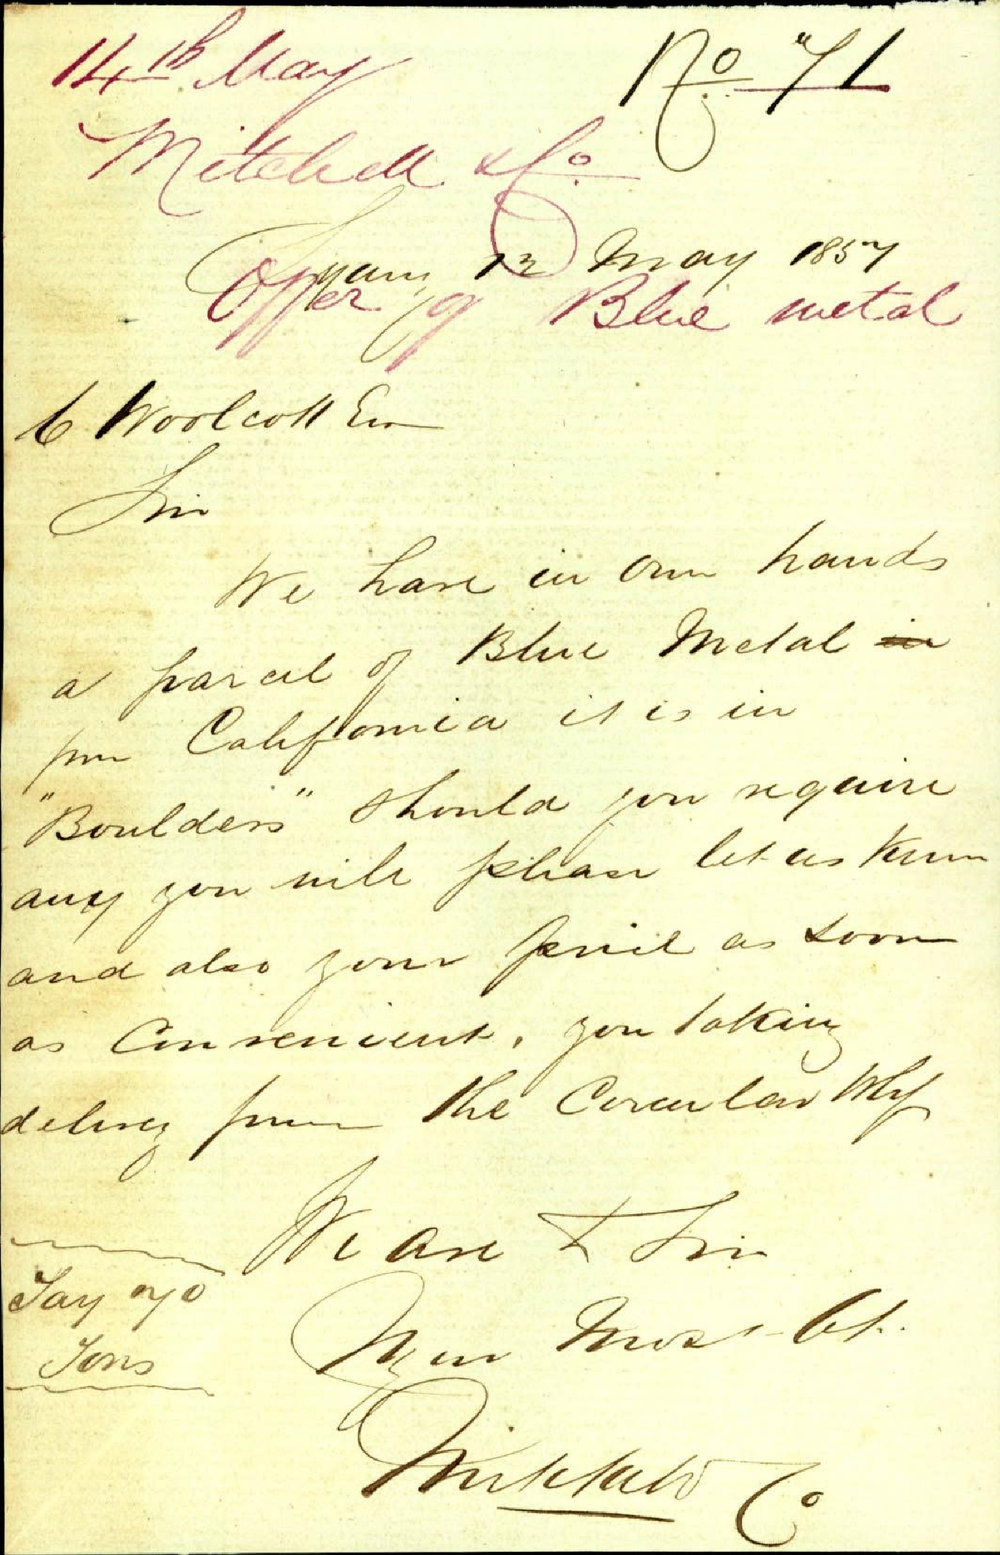 14th May
No 71
Mitchell & Co
Sydney 12 May 1857
Offer of Blue metal
C Woolcott Esq
Sir
We have in our hands
a parcel of Blue Metal in
from California it is in
"Boulders" should you require
any you will please let us know
and also your price as soon
as Convenient, you taking
delivery from the Circular Whf
We are Sir
Say 70
Tons
Your Most Ob.
Mitchell Co